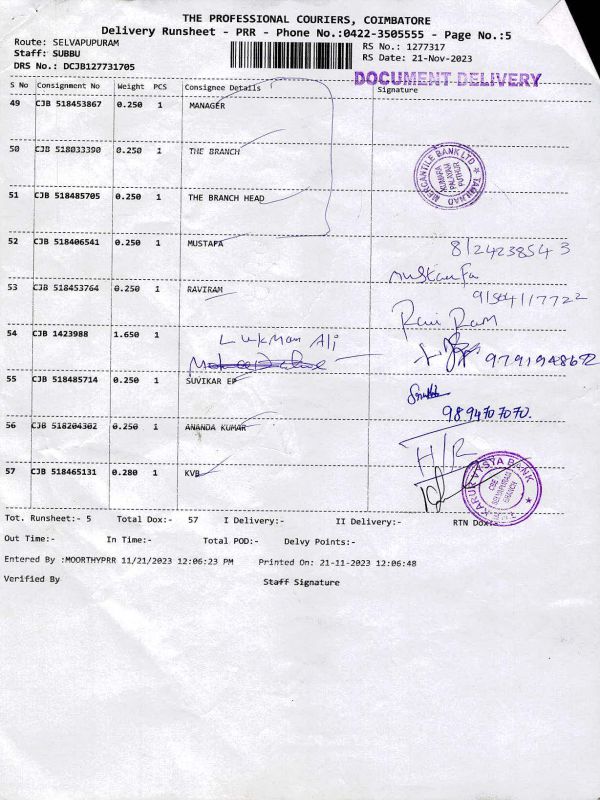 THE PROFESSIONAL COURIERS, COIMBATORE
Delivery Runsheet - PRR - Phone No.:0422-3505555 - Page No.:5
Route: SELVAPUPURAM
Staff: SUBBU
DRS No.: DCJB127731705
RS No.: 1277317
RS Date: 21-Nov-2023
DOCUMENT DELIVERY
S No Consignment No Weight PCS Consignee Details Signature
49 CJB 518453867 0.250 1 MANAGER
50 CJB 518033390 0.250 1 THE BRANCH
MERCANTILE BANK LTD ★ TAMILNAD
51 CJB 518485705 0.250 1 THE BRANCH HEAD
52 CJB 518406541 0.250 1 MUSTAFA
8124238543
53 CJB 518453764 0.250 1 RAVIRAM
Ravi Ram
54 CJB 1423988 1.650 1 Lukman Ali
9791948672
55 CJB 518485714 0.250 1 SUVIKAR EP
9894707070.
56 CJB 518204302 0.250 1 ANANDA KUMAR
H/R
57 CJB 518465131 0.280 1 KVB
KARUR VYSYA BANK ★
CBE
SELVAPURAM
BRANCH
Tot. Runsheet:- 5 Total Dox:- 57 I Delivery:- II Delivery:- RTN Dox:-
Out Time:- In Time:- Total POD:- Delvy Points:-
Entered By :MOORTHYPRR 11/21/2023 12:06:23 PM Printed On: 21-11-2023 12:06:48
Verified By Staff Signature